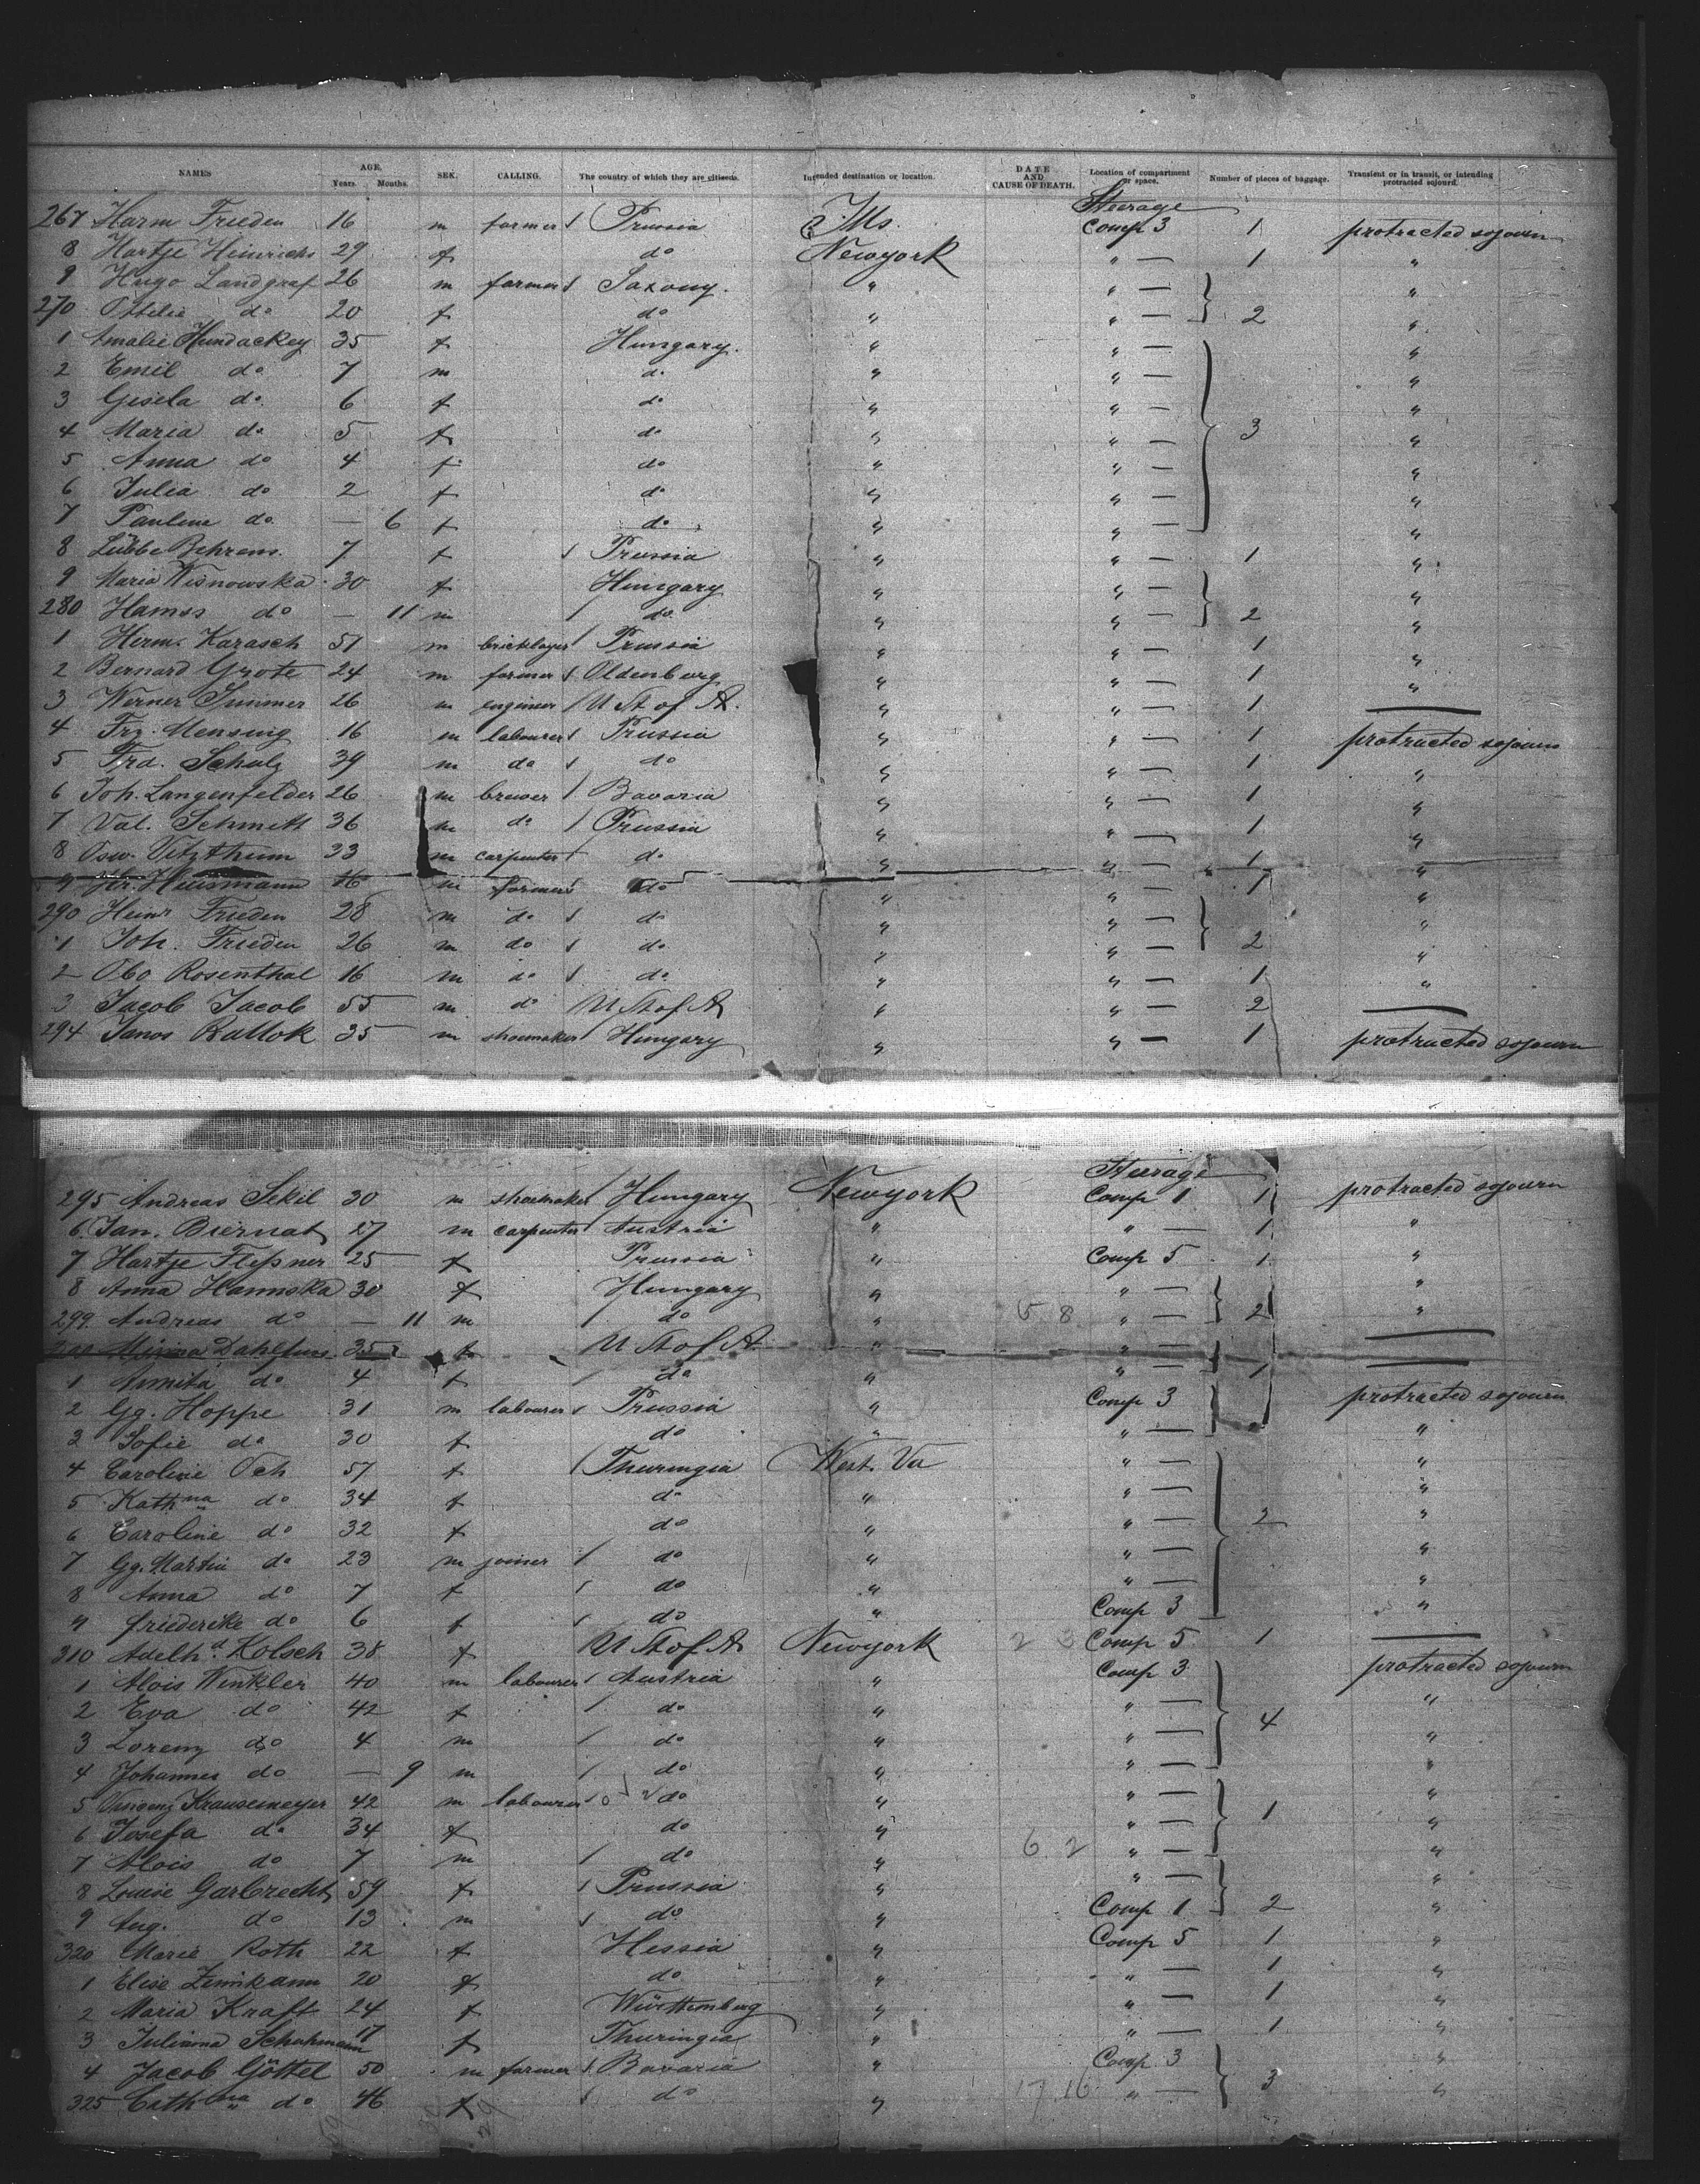 NAMES AGE. Years. Months. SEX. CALLING. The country of which they are citizens. Intended destination or location. DATE AND CAUSE OF DEATH. Location of compartment or space. Number of pieces of baggage. Transient or in transit, or intending protracted sojourn.
Steerage
267 Harm Frieden 16 m farmer Prussia Ills. Comp 3 1 protracted sojourn
8 Hartje Heinrichs 29 f do Newyork " — 1 "
9 Hugo Landgraf 26 m farmer Saxony. " " — "
270 Ottilie do 20 f do " " — 2 "
1 Amalie Hundackey 35 f Hungary. " " — "
2 Emil do 7 m do " " — "
3 Gisela do 6 f do " " — "
4 Maria do 5 f do " " — 3 "
5 Anna do 4 f do " " — "
6 Julia do 2 f do " " — "
7 Pauline do — 6 f do " " — "
8 Lübbe Behrens. 7 f Prussia " " — 1 "
9 Maria Wisnowska 30 f Hungary " " — "
280 Hamss do — 11 m do " " — 2 "
1 Herm. Karasch 51 m bricklayer Prussia " " — 1 "
2 Bernard Grote 24 m farmer Oldenburg " " — 1 "
3 Werner 26 m engineer U St of A. " " — 1 —
4 Frz. Mensing 16 m labourer Prussia " " — 1 protracted sojourn
5 Frd. Schulz 39 m do do " " — 1 "
6 Joh. Langenfelder 26 m brewer Bavaria " " — 1 "
7 Val. Schmitt 36 m do Prussia " " — 1 "
8 Osw. Vitzthum 33 m carpenter do " " — 1 "
9 Hr. Huismann 16 m farmer do " " — 1 "
290 Heinr Frieden 28 m do do " " — "
1 Joh. Frieden 26 m do do " " — 2 "
2 Obo Rosenthal 16 m do do " " — 1 "
3 Jacob Jacob 55 m do U St of A " " — 2 —
294 Janos Rattok 35 m shoemaker Hungary " " — 1 protracted sojourn
Steerage
295 Andreas Sekil 30 m shoemaker Hungary Newyork Comp 1 1 protracted sojourn
6 Jan. Biernat 27 m carpenter Austria " " — 1 "
7 Hartje Fleßner 25 f Prussia " Comp 5 1 "
8 Anna Hamnska 30 f Hungary " " — "
299 Andreas do — 11 m do " 5 8 " — 2 "
300 Minna 35 f U St of A " " — —
1 Annita do 4 f do " " — 1 —
2 Gg. Hoppe 31 m labourer Prussia " Comp 3 protracted sojourn
3 Sofie do 30 f do " " — "
4 Caroline Och 57 f Thuringia West. Va " — "
5 Kathna do 34 f do " " — "
6 Caroline do 32 f do " " — 2 "
7 Gg. Martin do 23 m joiner do " " — "
8 Anna do 7 f do " " — "
9 Friederike do 6 f do " Comp 3 "
310 Adelhd. Kolsch 38 f U St of A Newyork 2 3 Comp 5 1 —
1 Alois Winkler 40 m labourer Austria " Comp 3 protracted sojourn
2 Eva do 42 f do " " — "
3 Lorenz do 4 m do " " — 4 "
4 Johannes do — 9 m do " " — "
5 Vincenz Krausemeyer 42 m labourer do " " — "
6 Josefa do 34 f do " " — 1 "
7 Alois do 7 m do " 6 2 " — "
8 Louise Garbrecht 59 f Prussia " " — "
9 Aug. do 13 m do " Comp 1 2 "
320 Marie Roth 22 f Hessia " Comp 5 1 "
1 Elise 20 f do " " — 1 "
2 Maria Kraft 24 f Württemberg " " — 1 "
3 Juliana Schuhmann 17 f Thuringia " " — 1 "
4 Jacob Göttel 50 m farmer Bavaria " Comp 3 "
325 Cathna do 46 f do " 17 16 " — 3 "